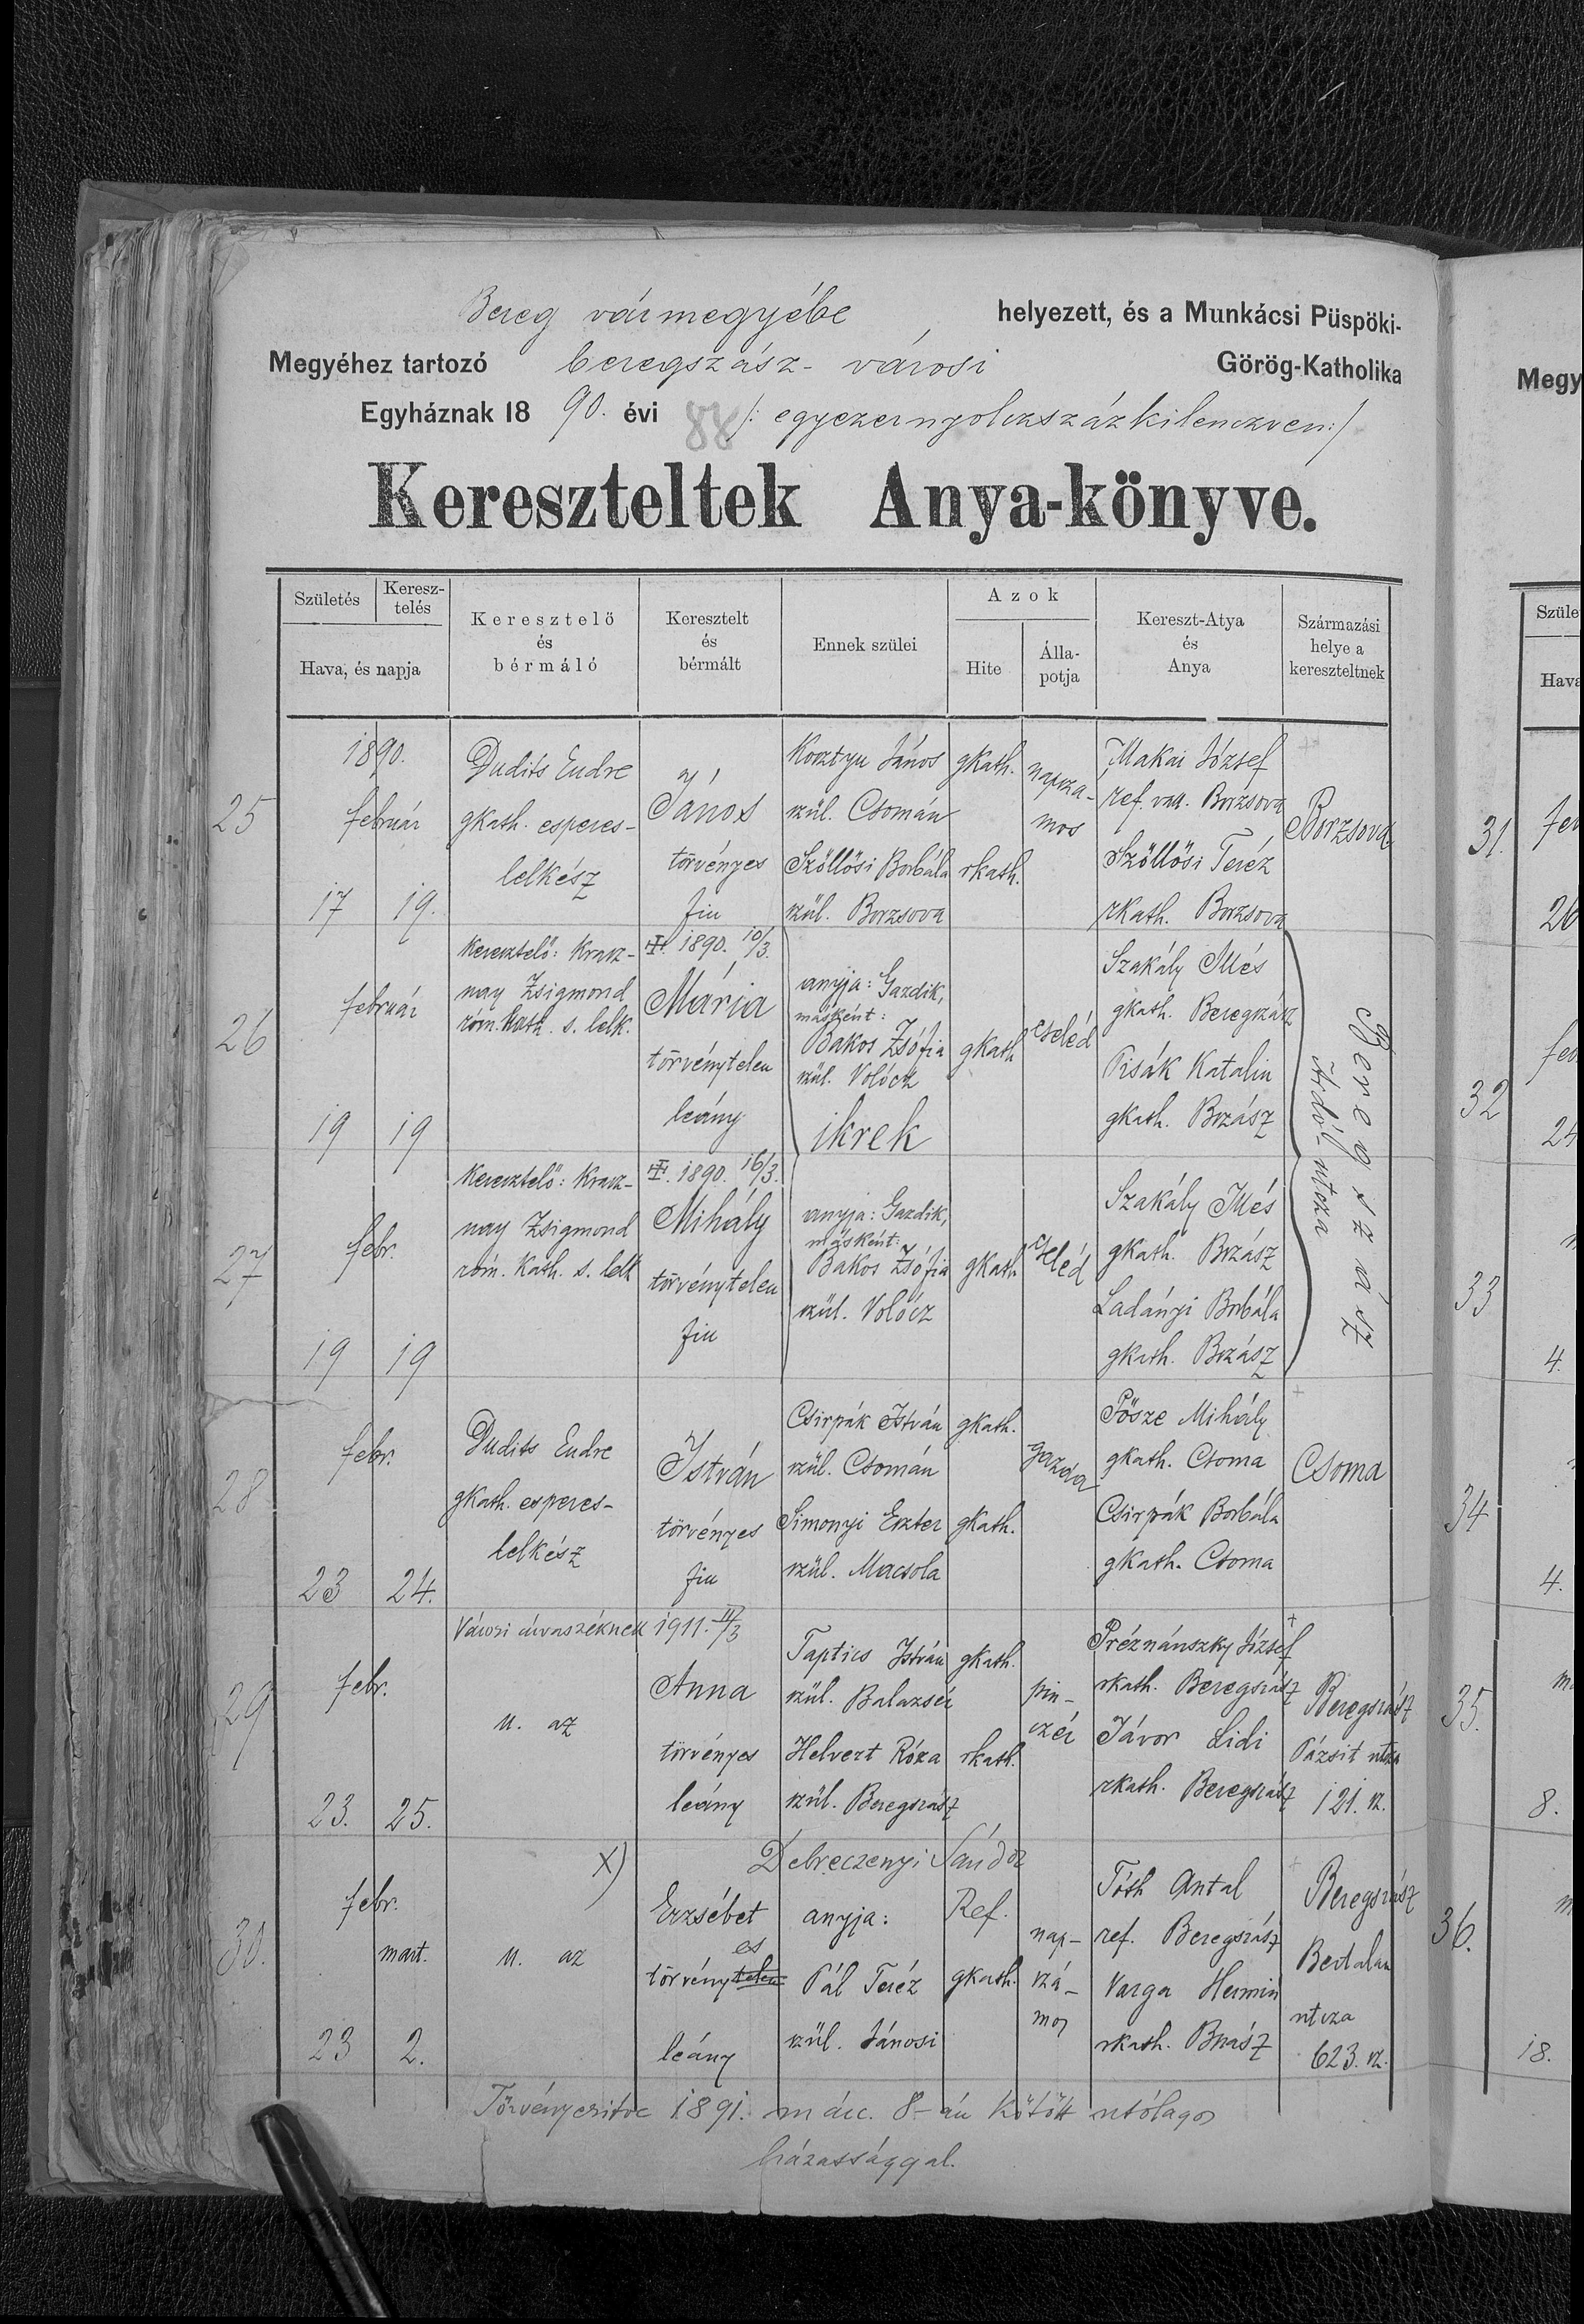 Bereg vármegyébe helyezett, és a Munkácsi Püspöki-
Megyéhez tartozó beregszász-városi Görög-Katholika
Egyháznak 1890. évi 88 /: egyezernyolczszázkilenczven:/
Kereszteltek Anya-könyve.
Születés
Keresz-
telés
Hava, és napja
Keresztelő
és
bérmáló
Keresztelt
és
bérmált
Ennek szülei
Azok
Hite
Álla-
potja
Kereszt-Atya
és
Anya
Származási
helye a
kereszteltnek
25
1890.
február
17 19.
Dudits Endre
gkath. esperes-
lelkész
János
törvényes
fiu
Kosztyu János
szül. Csomán
Szöllősi Borbála
szül. Borzsova
gkath.
rkath.
napsza-
mos
Makai József
ref. vall. Borzsova
Szöllősi Teréz
rkath. Borzsova
Borzsova
26
február
19 19
Keresztelő: Krasz-
nay Zsigmond
róm. kath. s. lelk.
1890. 10/3.
Mária
törvénytelen
leány
anyja: Gazdik,
másként:
Bakos Zsófia
szül. Volócz
ikrek
gkath
cseléd
Szakály Illés
gkath. Beregszász
Pisák Katalin
gkath. Bszász
Beregszász
Ardó-utcza
27
febr.
19 19
Keresztelő: Krasz-
nay Zsigmond
róm. kath. s. lelk
1890. 16/3.
Mihály
törvénytelen
fiu
anyja: Gazdik,
másként:
Bakos Zsófia
szül. Volócz
gkath
cseléd
Szakály Illés
gkath. Bszász
Ladányi Borbála
gkath. Bszász
28
febr.
23 24.
Dudits Endre
gkath. esperes-
lelkész
István
törvényes
fiu
Csirpák István
szül. Csomán
Simonyi Eszter
szül. Macsola
gkath.
gkath.
gazda
Pősze Mihály
gkath. Csoma
Csirpák Borbála
gkath. Csoma
Csoma
29
febr.
23. 25.
Városi árvaszéknek 1911. II/3
u. az
Anna
törvényes
leány
Taptics István
szül. Balazsér
Helvert Róza
szül. Beregszász
gkath.
rkath.
pin-
czér
Préznánszky József
rkath. Beregszász
Jávor Lidi
rkath. Beregszász
Beregszász
Pázsit utcza
121. sz.
30.
febr.
mart.
23 2.
X)
u. az
Erzsébet
es
törvénytelen
leány
Debreczenyi Sándor
anyja:
Pál Teréz
szül. Jánosi
Ref.
gkath.
nap-
szá-
mos
Tóth Antal
ref. Beregszász
Varga Hermin
rkath. Bszász
Beregszász
Bertalan
utcza
623. sz.
Törvényesitve 1891. márc. 8-án kötött utólagos
házassággal.
Megy
Szüle
Hava
31.
26
32
24
33
4.
34
4.
35.
8.
36.
18.